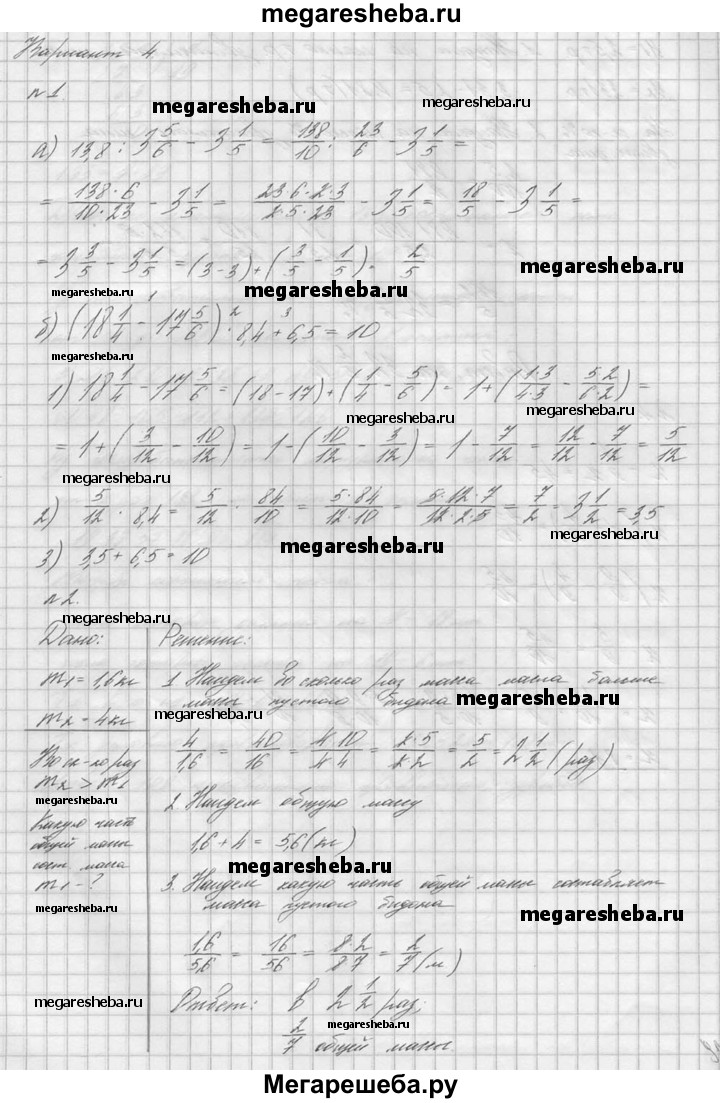 megaresheba.ru
Вариант 4
№1
megaresheba.ru megaresheba.ru
а) 13,8 : 3 5/6 - 3 1/5 = 138/10 : 23/6 - 3 1/5 =
= 138·6/10·23 - 3 1/5 = 23·6·2·3/2·5·23 - 3 1/5 = 18/5 - 3 1/5 =
= 3 3/5 - 3 1/5 = (3-3)+(3/5 - 1/5) = 2/5 megaresheba.ru
megaresheba.ru megaresheba.ru
б) (18 1/4 - 17 5/6) · 8,4 + 6,5 = 10
megaresheba.ru
1) 18 1/4 - 17 5/6 = (18-17)+(1/4 - 5/6) = 1+(1·3/4·3 - 5·2/6·2) =
megaresheba.ru megaresheba.ru
= 1+(3/12 - 10/12) = 1-(10/12 - 3/12) = 1 - 7/12 = 12/12 - 7/12 = 5/12
megaresheba.ru
2) 5/12 · 8,4 = 5/12 · 84/10 = 5·84/12·10 = 5·12·7/12·2·5 = 7/2 = 3 1/2 = 3,5
megaresheba.ru
3) 3,5 + 6,5 = 10 megaresheba.ru
№2.
megaresheba.ru
Дано: Решение:
m1 = 1,6 кг 1 Найдем во сколько раз масса масла больше
массы пустого бидона megaresheba.ru
m2 = 4 кг megaresheba.ru
4/1,6 = 40/16 = 4·10/4·4 = 2·5/2·2 = 5/2 = 2 1/2 (раз)
Во ск-ко раз
m2 > m1
megaresheba.ru 2 Найдем общую массу
Какую част
общей массы 1,6 + 4 = 5,6 (кг)
сост. масса megaresheba.ru
m1 - ? 3. Найдем какую часть общей массы составляет
масса пустого бидона
megaresheba.ru megaresheba.ru
1,6/5,6 = 16/56 = 8·2/8·7 = 2/7 (м)
megaresheba.ru Ответ: в 2 1/2 раз;
megaresheba.ru
2/7 общей массы.
megaresheba.ru
Мегарешеба.ру